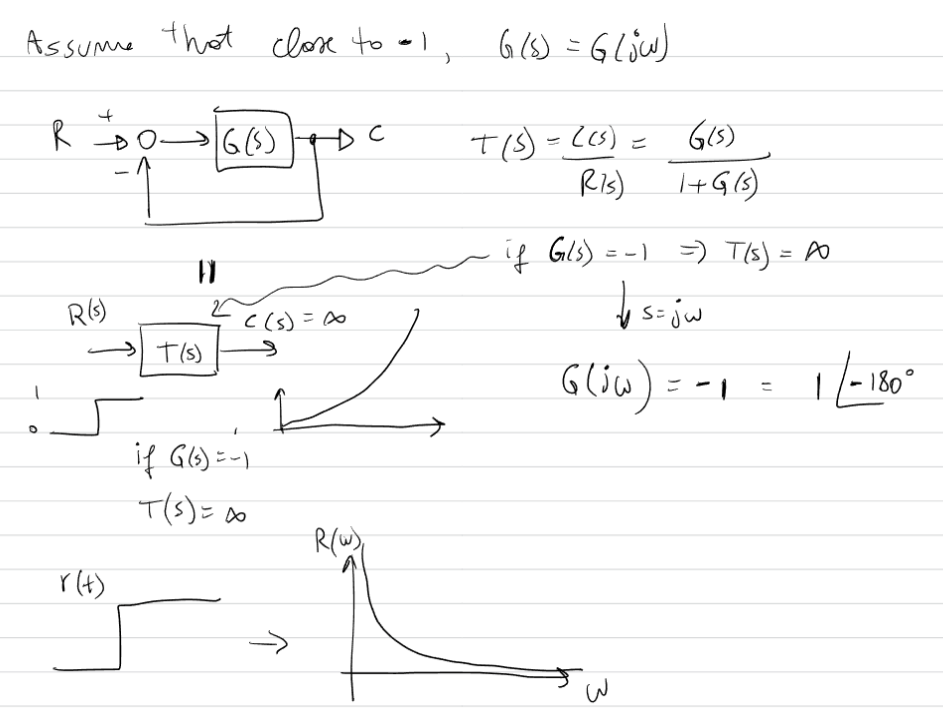 Assume that close to -1, G(s) = G(jω)
R + - G(s) C
T(s) = C(s)/R(s) = G(s)/1+G(s)
if G(s) = -1 => T(s) = ∞
↓ s=jω
G(jω) = -1 = 1∠-180°
R(s)
T(s)
C(s) = ∞
1
0
if G(s)=-1
T(s)= ∞
r(t)
→
R(ω)
ω